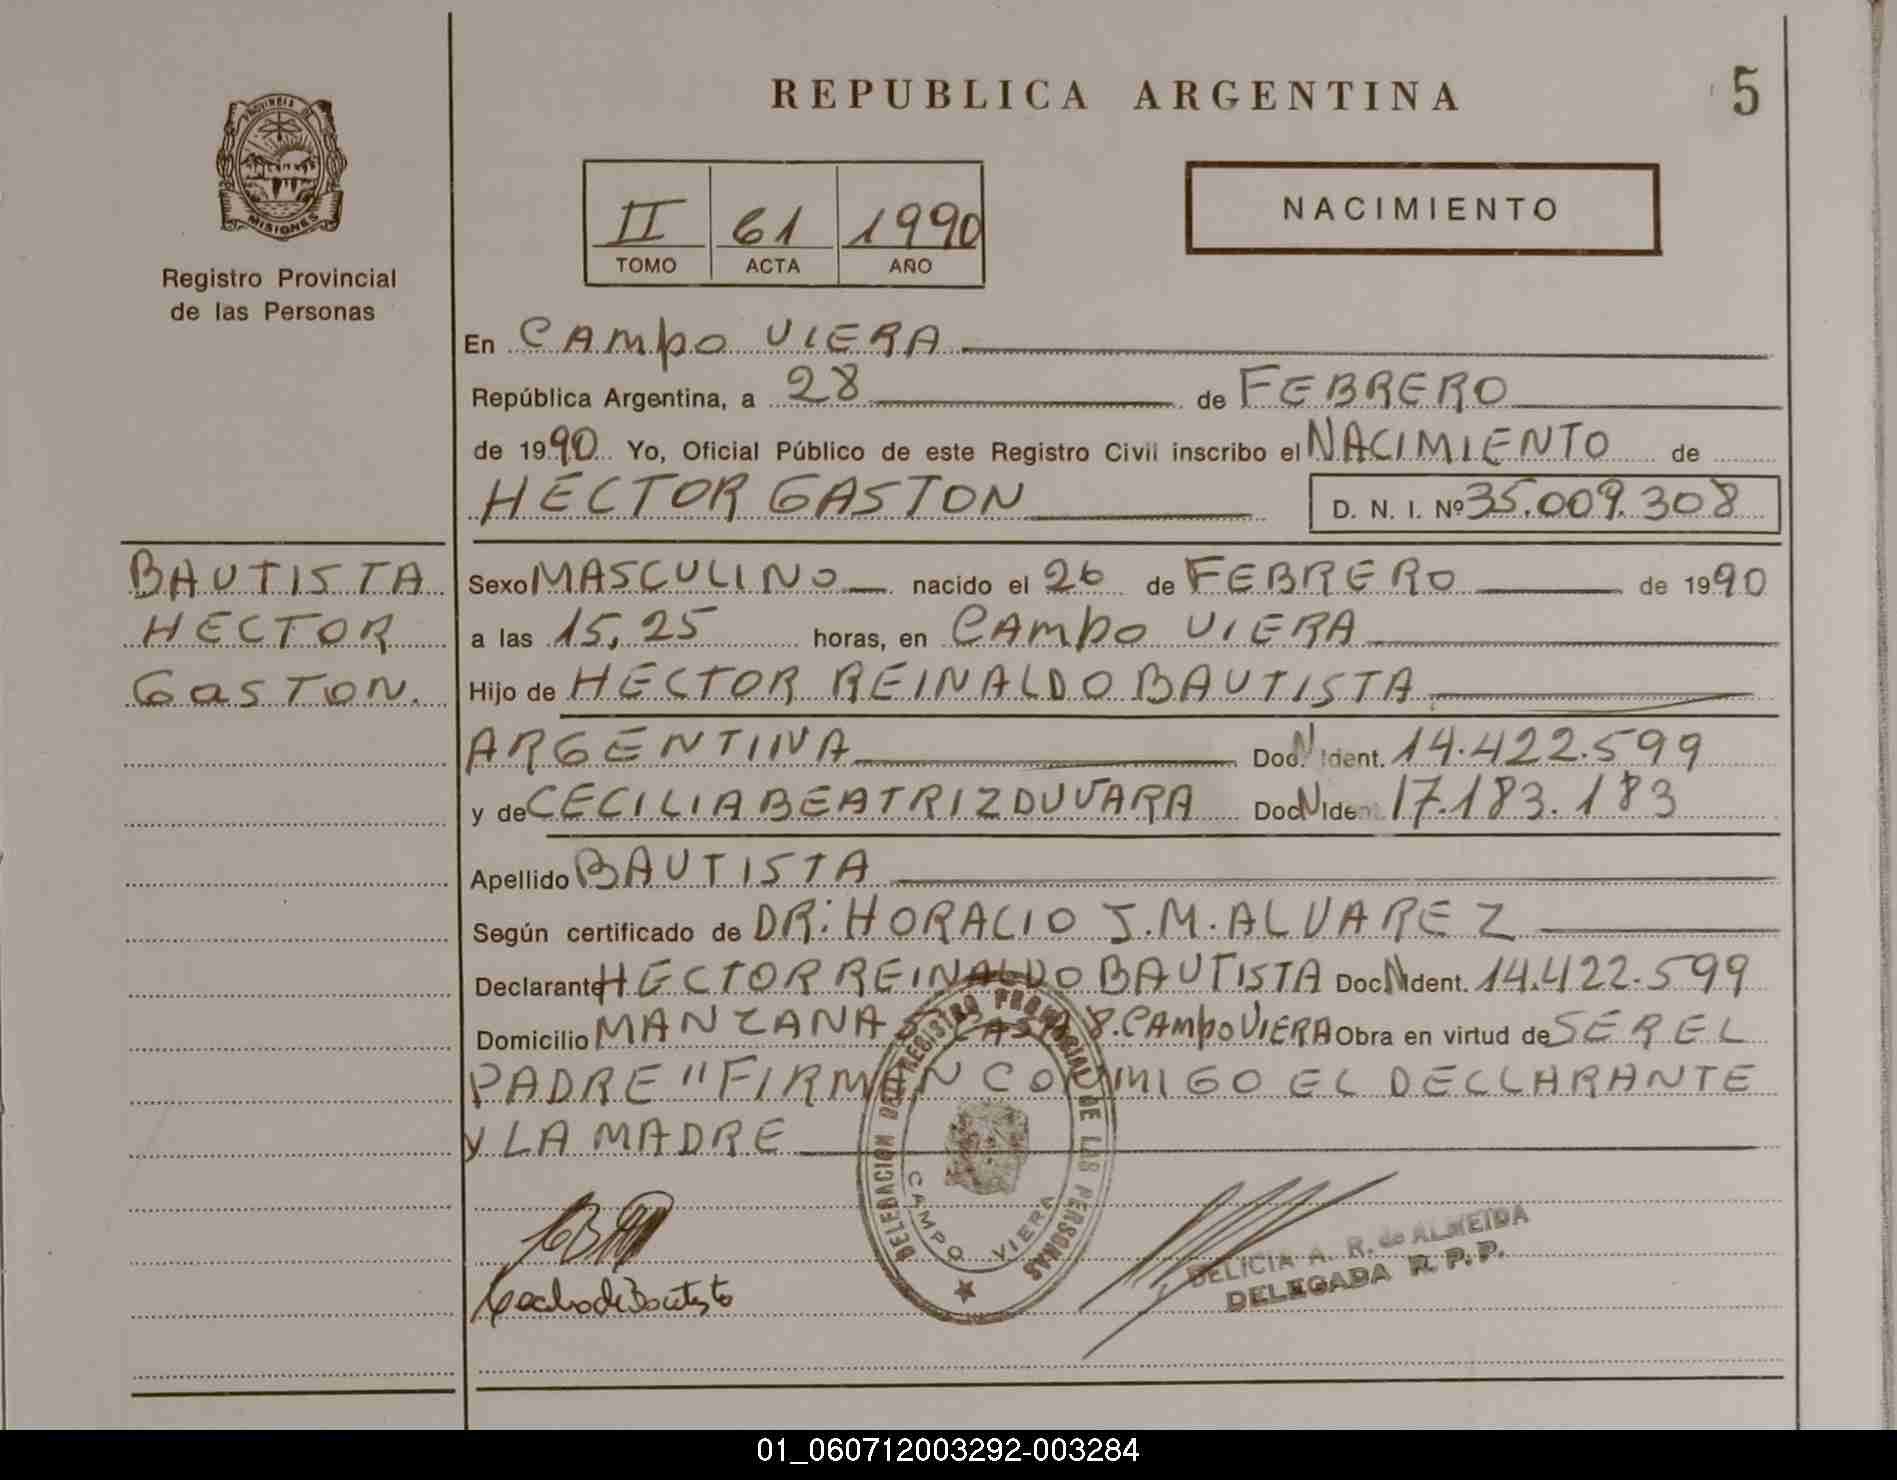 REPUBLICA ARGENTINA
5
PROVINCIA DE
MISIONES
Registro Provincial
de las Personas
II 61 1990
TOMO ACTA AÑO
NACIMIENTO
En CAMPO VIERA
República Argentina, a 28 de FEBRERO
de 1990 Yo, Oficial Público de este Registro Civil inscribo el NACIMIENTO de
HECTOR GASTON D. N. I. Nº 35.009.308
BAUTISTA
HECTOR
GASTON.
Sexo MASCULINO nacido el 26 de FEBRERO de 1990
a las 15,25 horas, en CAMPO VIERA
Hijo de HECTOR REINALDO BAUTISTA
ARGENTINA Doc.N Ident. 14.422.599
y de CECILIA BEATRIZ DUVARA Doc N Ident 17.183.183
Apellido BAUTISTA
Según certificado de DR: HORACIO J.M. ALVAREZ
Declarante HECTOR REINALDO BAUTISTA Doc N Ident. 14.422.599
Domicilio MANZANA CASA 8. CAMPO VIERA Obra en virtud de SER EL
PADRE "FIRMAN CONMIGO EL DECLARANTE
y LA MADRE
DELEGACION DEL REGISTRO PROVINCIAL DE LAS PERSONAS
CAMPO VIERA
DELICIA A. R. de ALMEIDA
DELEGADA R. P. P.
de Bautista
01_060712003292-003284